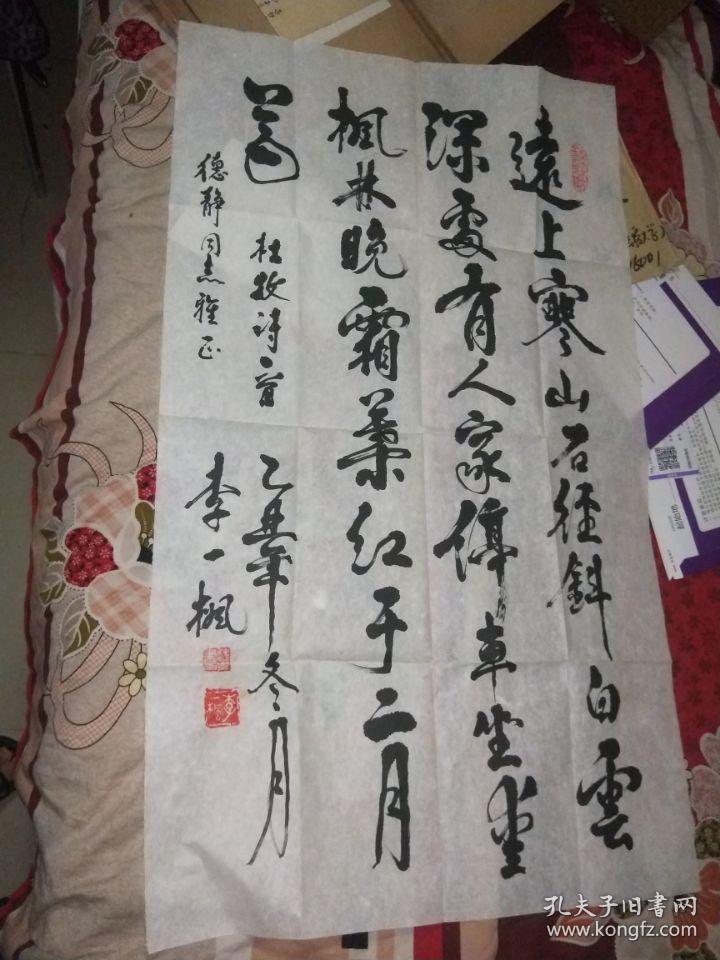 遠上寒山石徑斜白雲
深處有人家停車坐愛
楓林晚霜葉紅于二月
花 杜牧诗一首 乙丑年冬月
德静同志雅正 李一楓
李一楓
孔夫子旧书网
www.kongfz.com